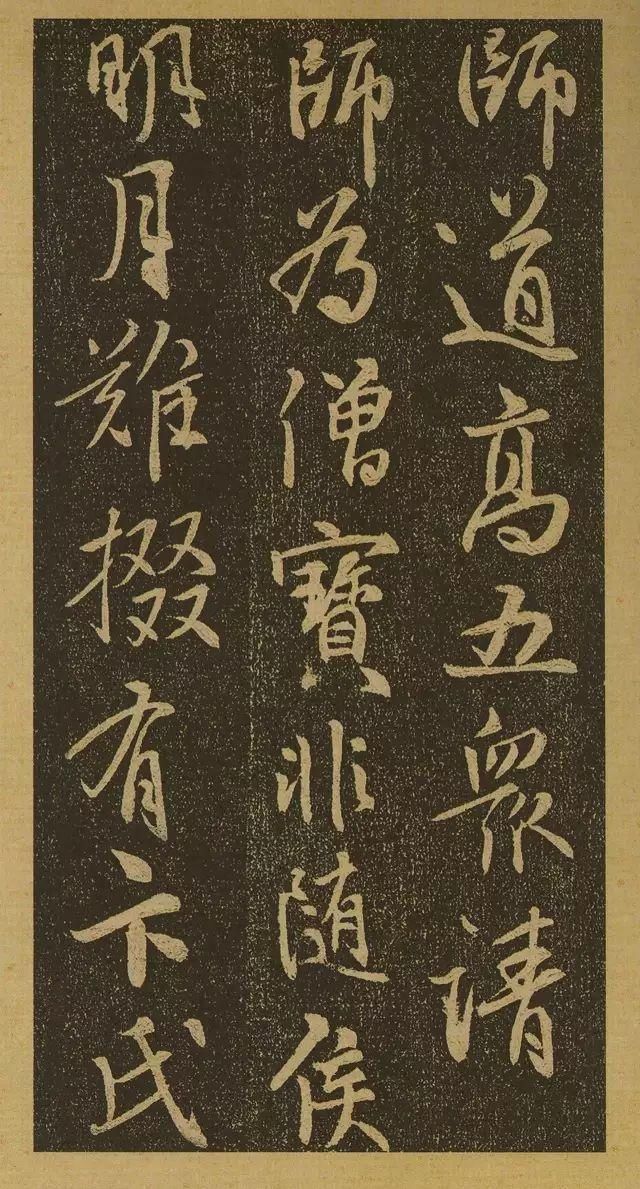 師道高五衆請
師為僧寶非随侯
明月難掇有卞氏